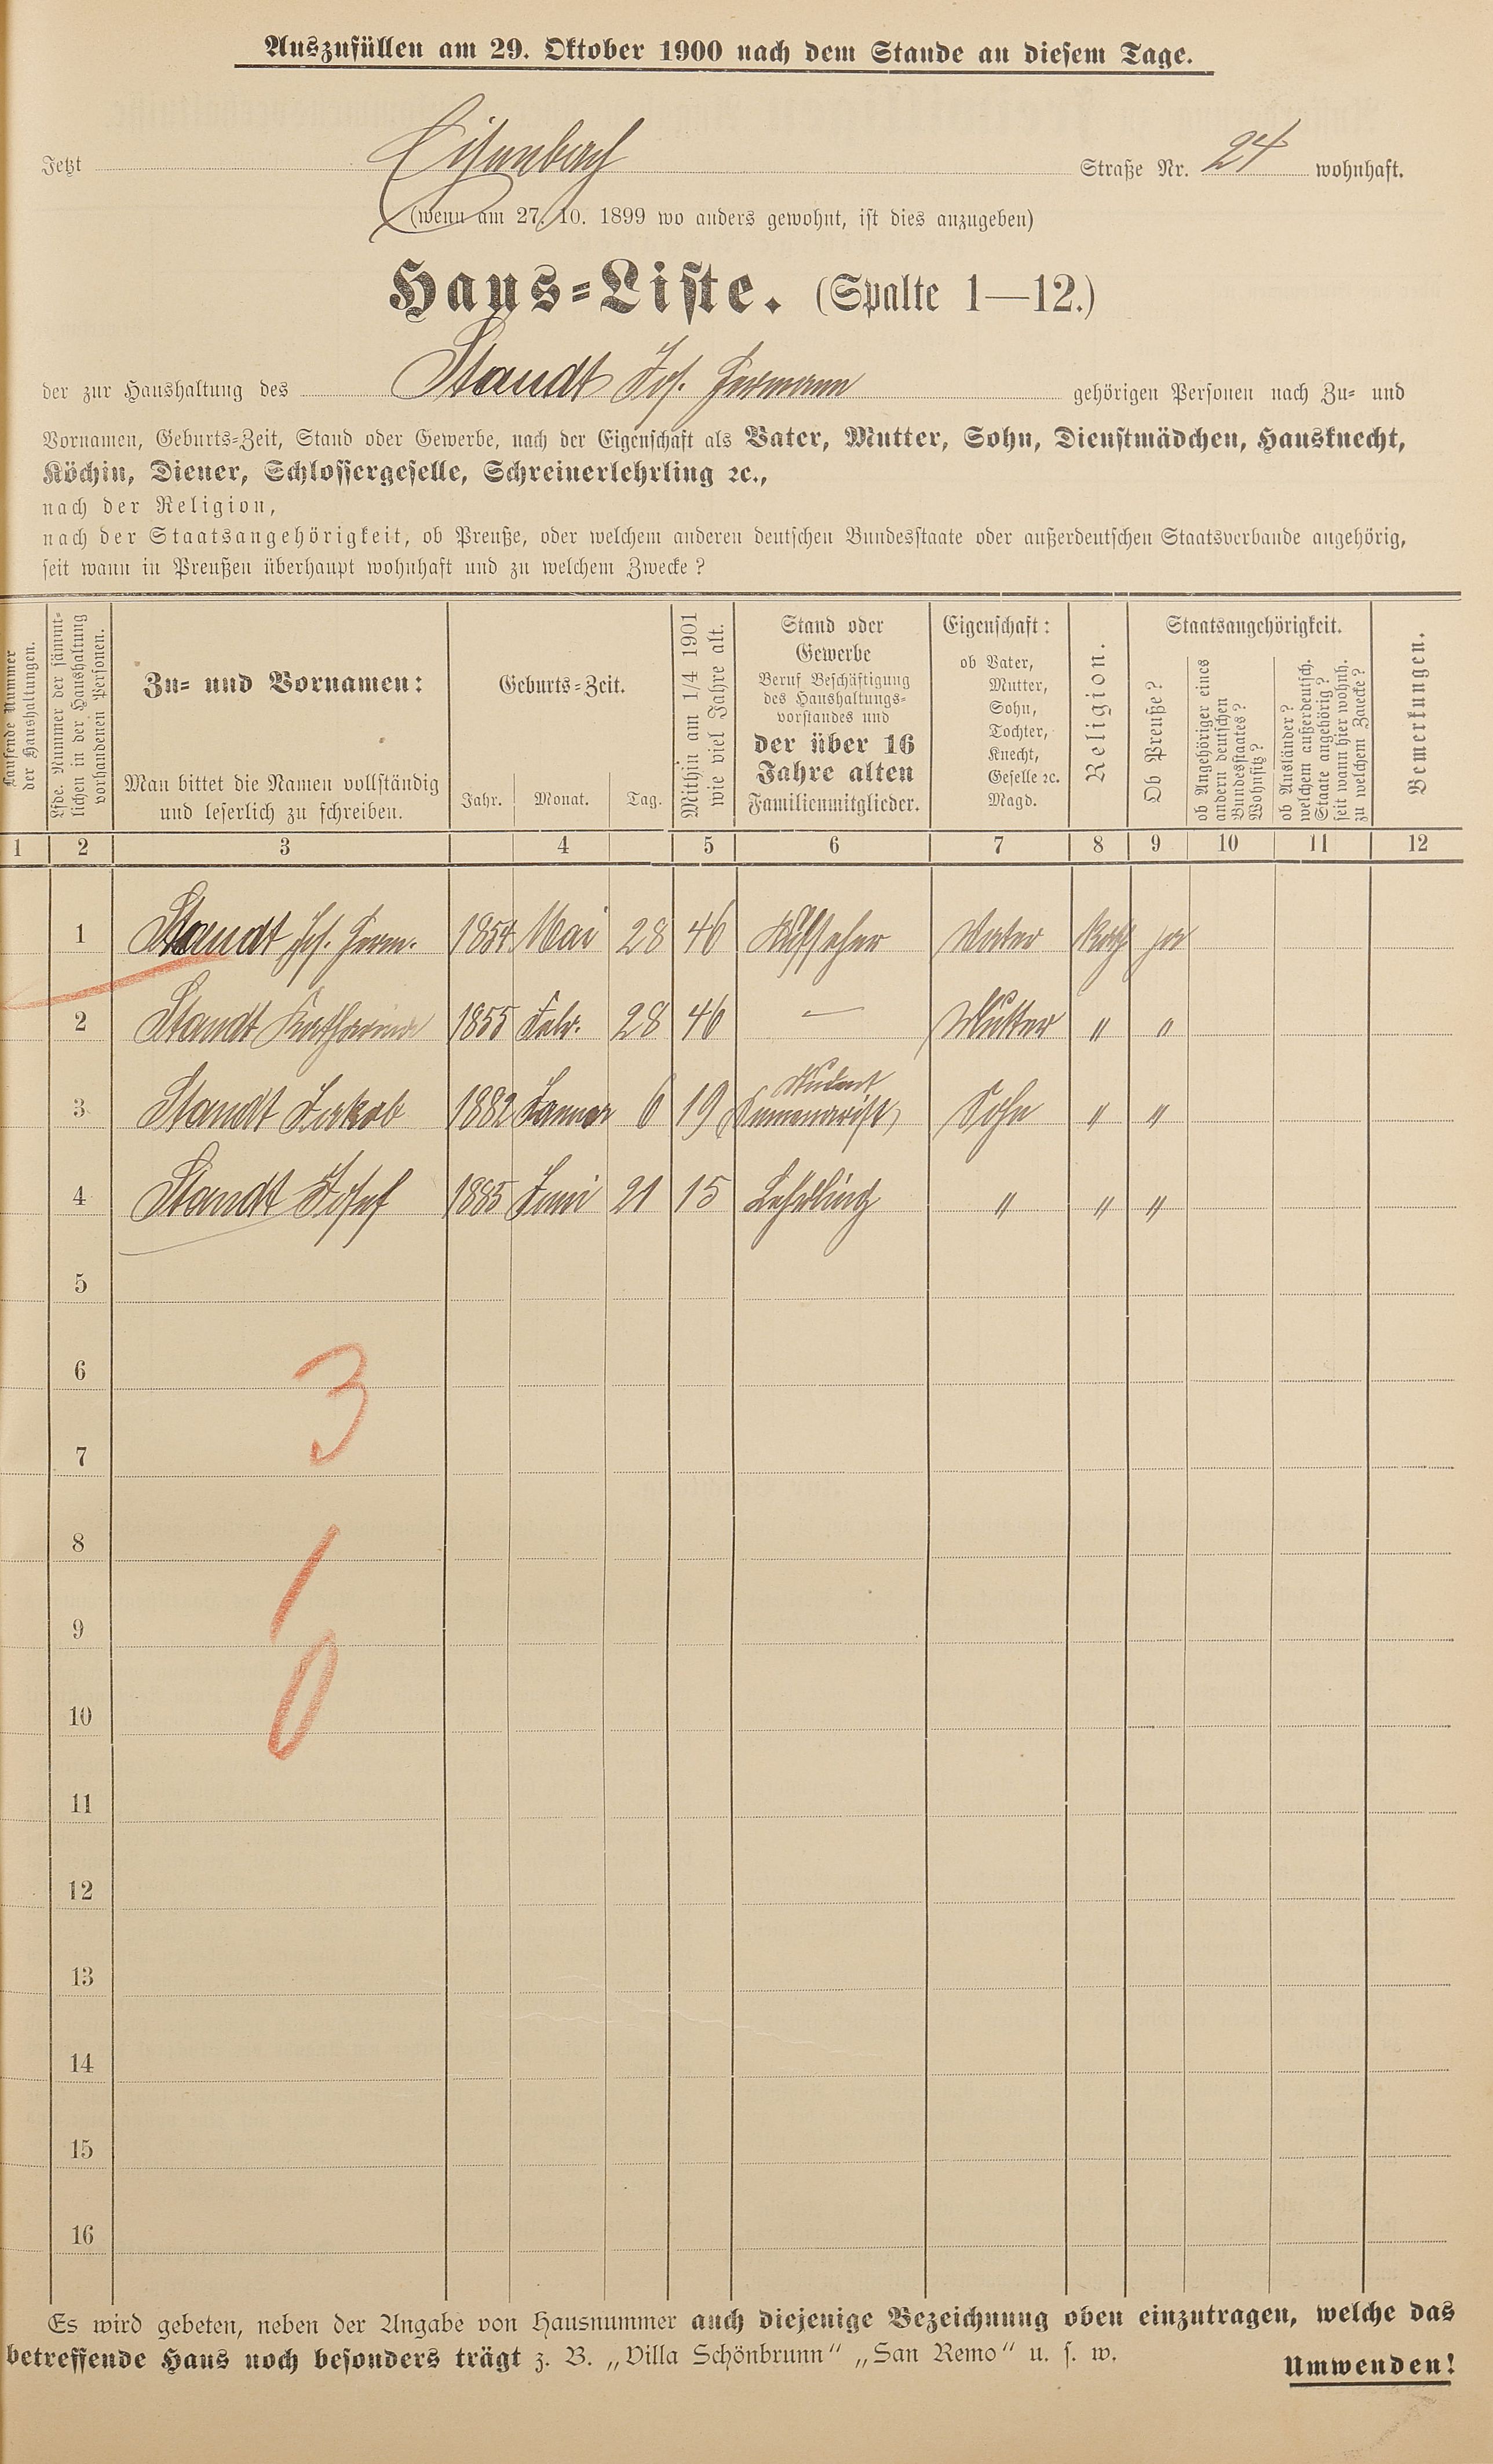 Auszufüllen am 29. Oktober 1900 nach dem Stande an diesem Tage.
Jetzt Eisenbach Straße Nr. 24 wohnhaft.
(wenn am 27. 10. 1899 wo anders gewohnt, ist dies anzugeben)
Haus-Liste. (Spalte 1—12.)
der zur Haushaltung des Staudt Jos. Hermann gehörigen Personen nach Zu- und
Vornamen, Geburts-Zeit, Stand oder Gewerbe, nach der Eigenschaft als Vater, Mutter, Sohn, Dienstmädchen, Hausknecht,
Köchin, Diener, Schlossergeselle, Schreinerlehrling ꝛc.,
nach der Religion,
nach der Staatsangehörigkeit, ob Preuße, oder welchem anderen deutschen Bundesstaate oder außerdeutschen Staatsverbande angehörig,
seit wann in Preußen überhaupt wohnhaft und zu welchem Zwecke?
Laufende Nummer
der Haushaltungen.
Lfde. Nummer der sämmt-
lichen in der Haushaltung
vorhandenen Personen.
Zu- und Vornamen:
Man bittet die Namen vollständig
und leserlich zu schreiben.
Geburts-Zeit.
Jahr. Monat. Tag.
Mithin am 1/4 1901
wie viel Jahre alt.
Stand oder
Gewerbe
Beruf Beschäftigung
des Haushaltungs-
vorstandes und
der über 16
Jahre alten
Familienmitglieder.
Eigenschaft:
ob Vater,
Mutter,
Sohn,
Tochter,
Knecht,
Geselle ꝛc.
Magd.
Religion.
Staatsangehörigkeit.
Ob Preuße?
ob Angehöriger eines
andern deutschen
Bundesstaates?
Wohnsitz?
ob Ausländer?
welchem außerdeutsch.
Staate angehörig?
seit wann hier wohnh.
zu welchem Zwecke?
Bemerkungen.
1 2 3 4 5 6 7 8 9 10 11 12
1 Staudt Jos. Herm. 1854 Mai 28 46 Aufseher Vater Kath ja
2 Staudt Katharina 1855 Febr. 28 46 — Mutter " "
3 Staudt Jakob 1882 Januar 6 19 Sohn " "
4 Staudt Josef 1885 Juni 21 15 Lehrling " " "
5
6
3
7
8
9
10
11
12
13
14
15
16
Es wird gebeten, neben der Angabe von Hausnummer auch diejenige Bezeichnung oben einzutragen, welche das
betreffende Haus noch besonders trägt z. B. „Villa Schönbrunn“ „San Remo“ u. s. w.
Umwenden!